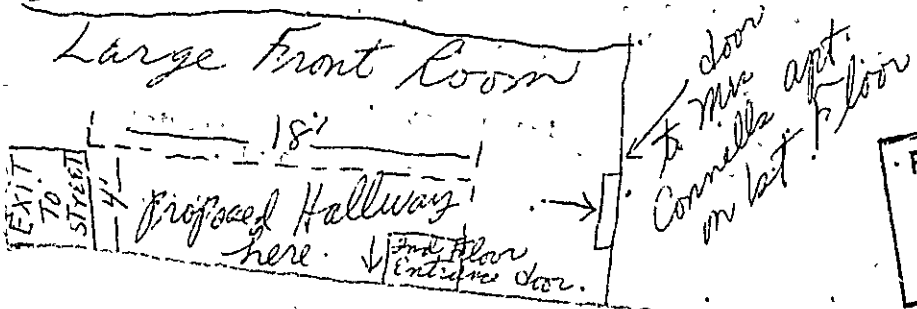 Large Front Room
18'
EXIT
TO
STREET
4'
proposed Hallway
here.
2nd Floor
Entrance door.
door
to Mrs
Connells apt.
on 1st Floor